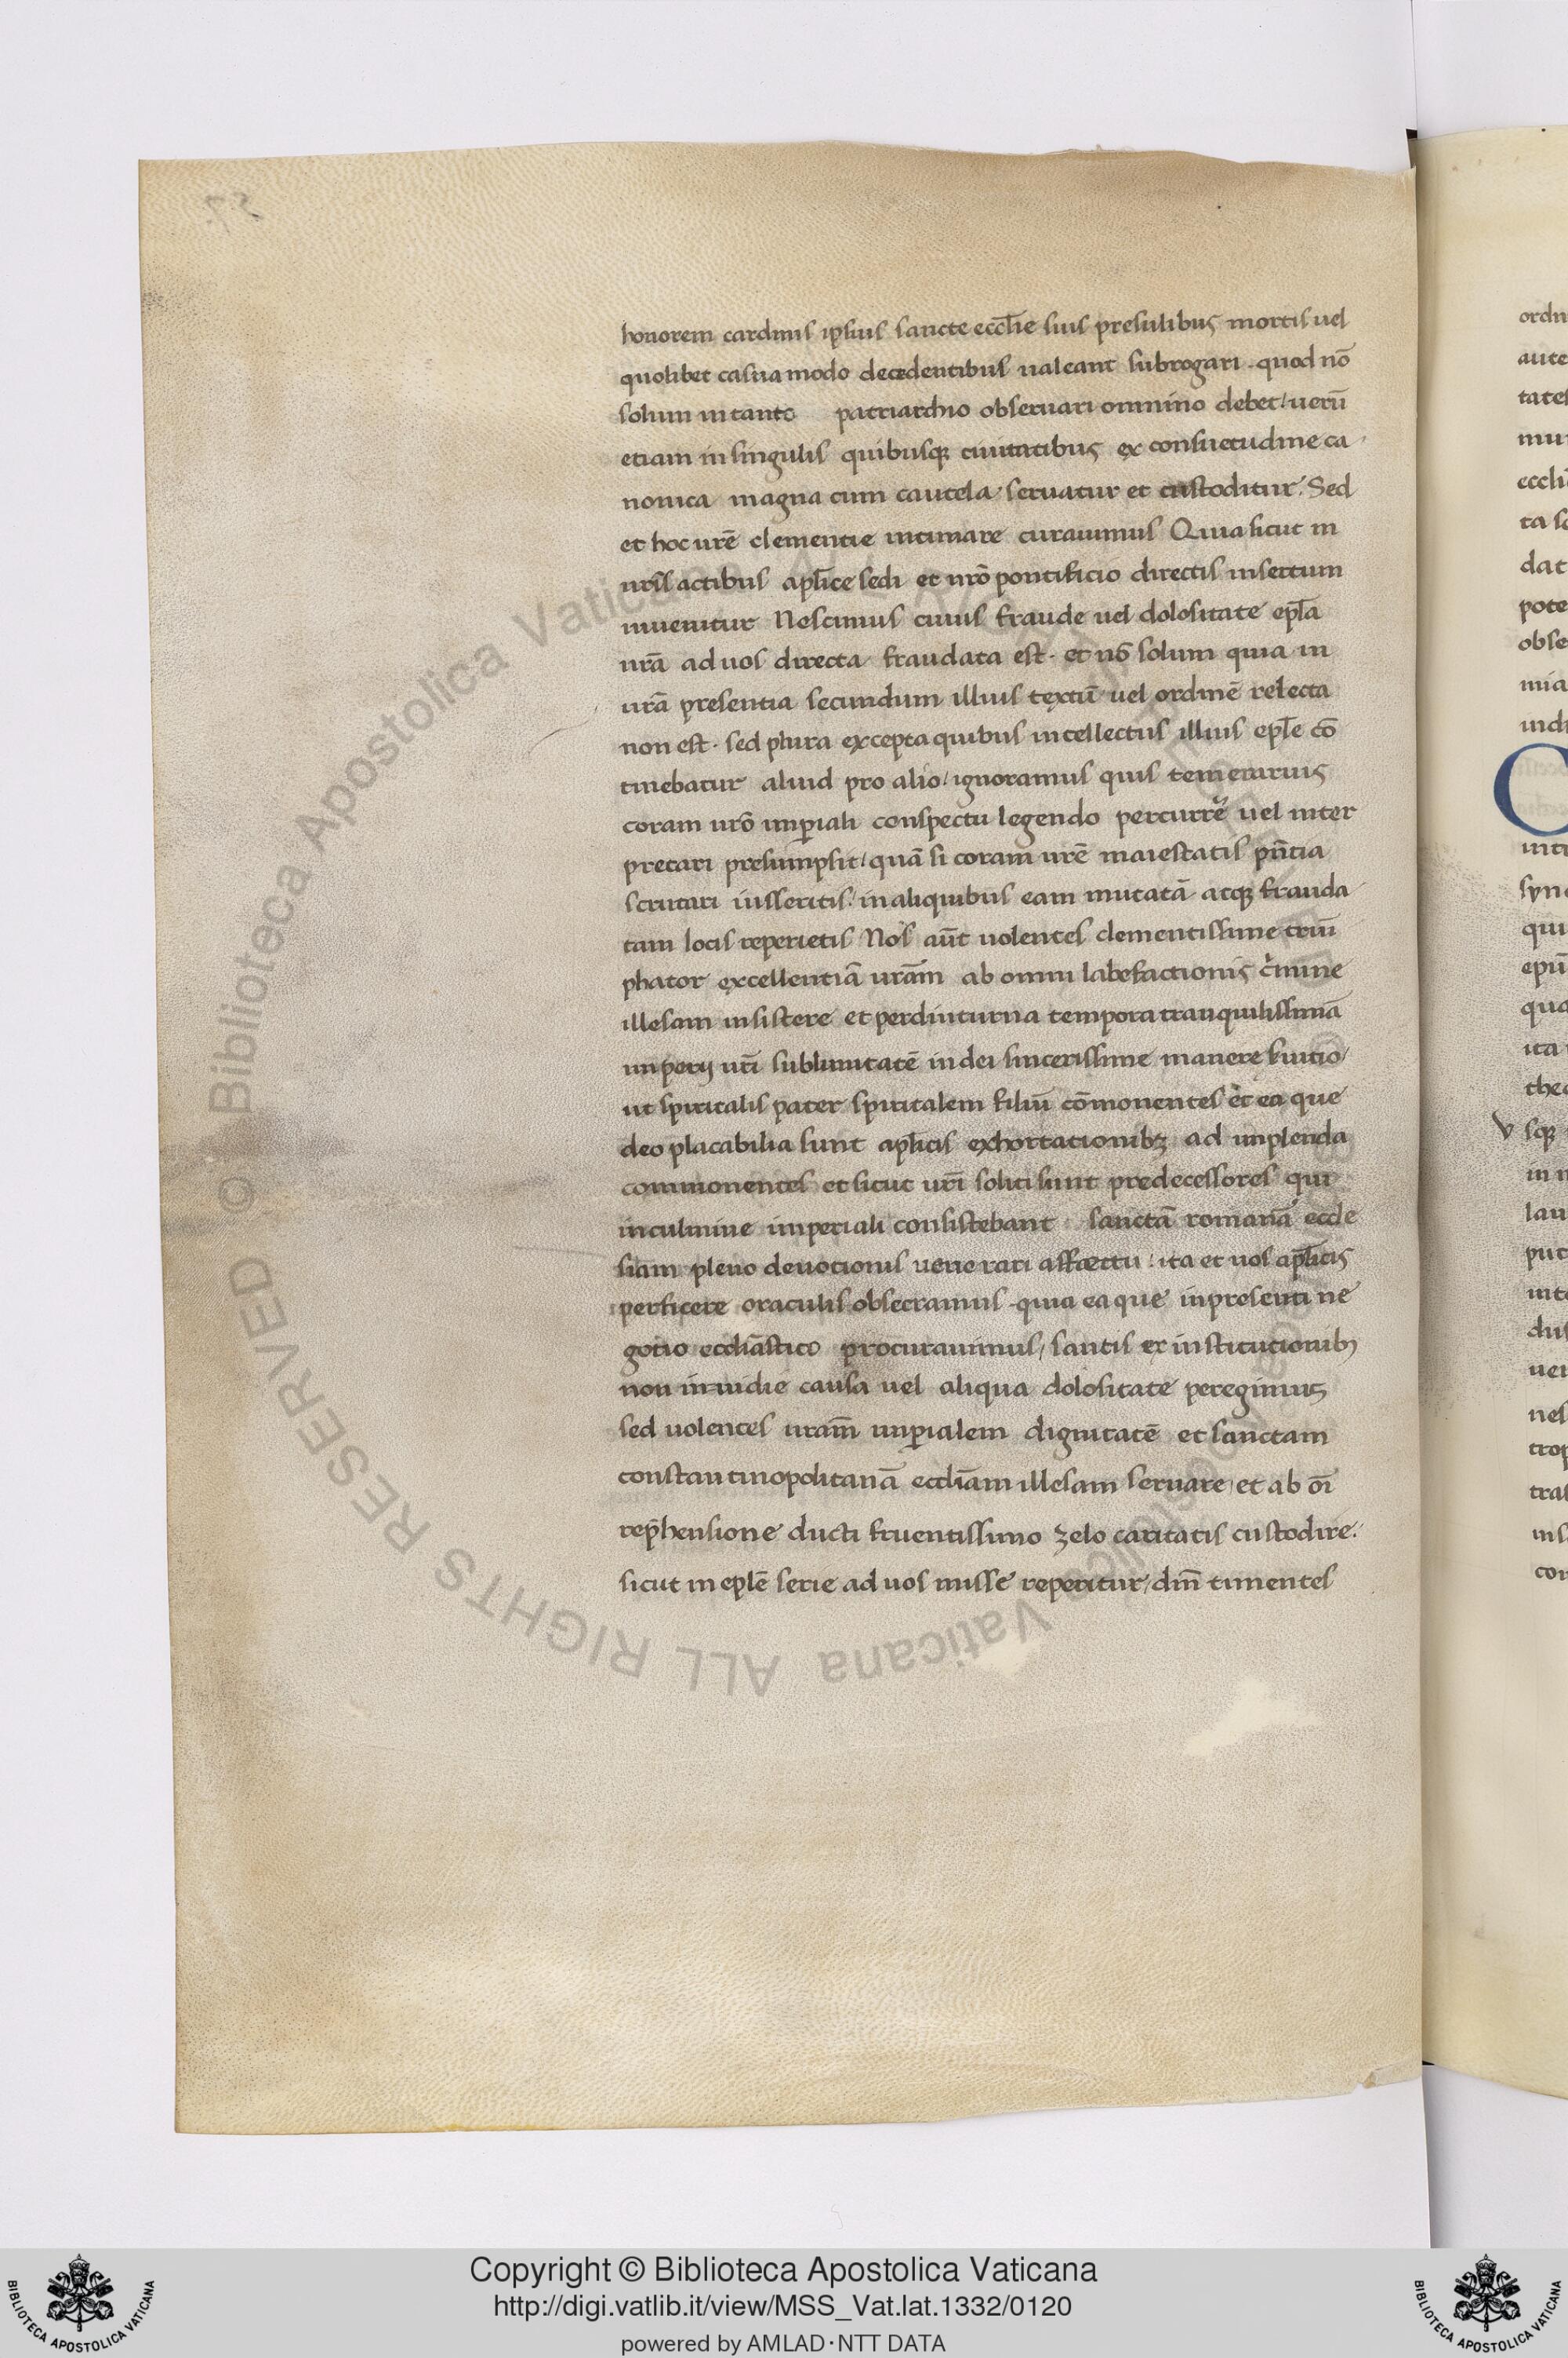 honorem cardinis ipsius sancte eccl̄ie suis presulibus mortis uel
quolibet casuamodo decedentibus ualeant subrogari . quod nō
solum in tanto patriarchio obseruari omnino debet / uerū
etiam in singulis quibusq; ciuitatibus ex consuetudine ca
nonica magna cum cautela seruatur et custoditur . Sed
et hoc urē clementie intimare curauimus Quia sicut in
urīs actibus apl̄ice sedi et nrō pontificio directis insertum
inuenitur Nescimus cuius fraude uel dolositate epl̄a
nrā ad uos directa fraudata est . et nō solum quia in
urā presentia secundum illius textū uel ordinē relecta
non est . sed plura excepta quibus intellectus illius epl̄e cō
tinebatur aliud pro alio / ignoramus quis temerarius
coram urō imp̄iali conspectu legendo percurrē uel inter
pretari presumpsit / quā si coram urē maiestatis pn̄tia
scrutari iusseritis / in aliquibus eam mutatā atq; frauda
tam locis reperietis Nos aūt uolentes clementissime triū
phator excellentiā urām ab omni labefactionis c̄mine
illesam insistere et perdiuturna tempora tranquilissimā
imperij urī sublimitatē in dei sincerissime manere
ut spiritalis pater spiritalem filiū cōmonentes et ea que
deo placabilia sunt apl̄icis exhortationib; ad implenda
commonentes et sicut urī soliti sunt predecessores qui
in culmine imperiali consistebant sanctā romanā eccle
siam pleno deuotionis uenerari affectu : ita et uos apl̄icis
perficere oraculis obsecramus . quia ea que in presenti ne
gotio eccliāstico procurauimus / santis ex institutionib;
non inuidie causa uel aliqua dolositate peregimus
sed uolentes uram̄ imp̄ialem dignitatē et sanctam
constantinopolitanā eccliām illesam seruare et ab oī
rep̄hensione ducti fruentissimo zelo caritatis custodire .
sicut in eplē serie ad uos misse reperitur / dm̄ timentes
ordn
aute
tates
mu
eccli
ta s
dat
pote
obse
mia
C
syn
qui
epū
qua
ita
the
v sq;
in n
lau
put
int
dus
uer
nes
trop
tras
ins
con
© Biblioteca Apostolica Vaticana ALL RIGHTS RESERVED © Biblioteca Apostolica Vaticana ALL RIGHTS RESERVED
Copyright © Biblioteca Apostolica Vaticana
http://digi.vatlib.it/view/MSS_Vat.lat.1332/0120
powered by AMLAD·NTT DATA
BIBLIOTECA APOSTOLICA VATICANA
BIBLIOTECA APOSTOLICA VATICANA